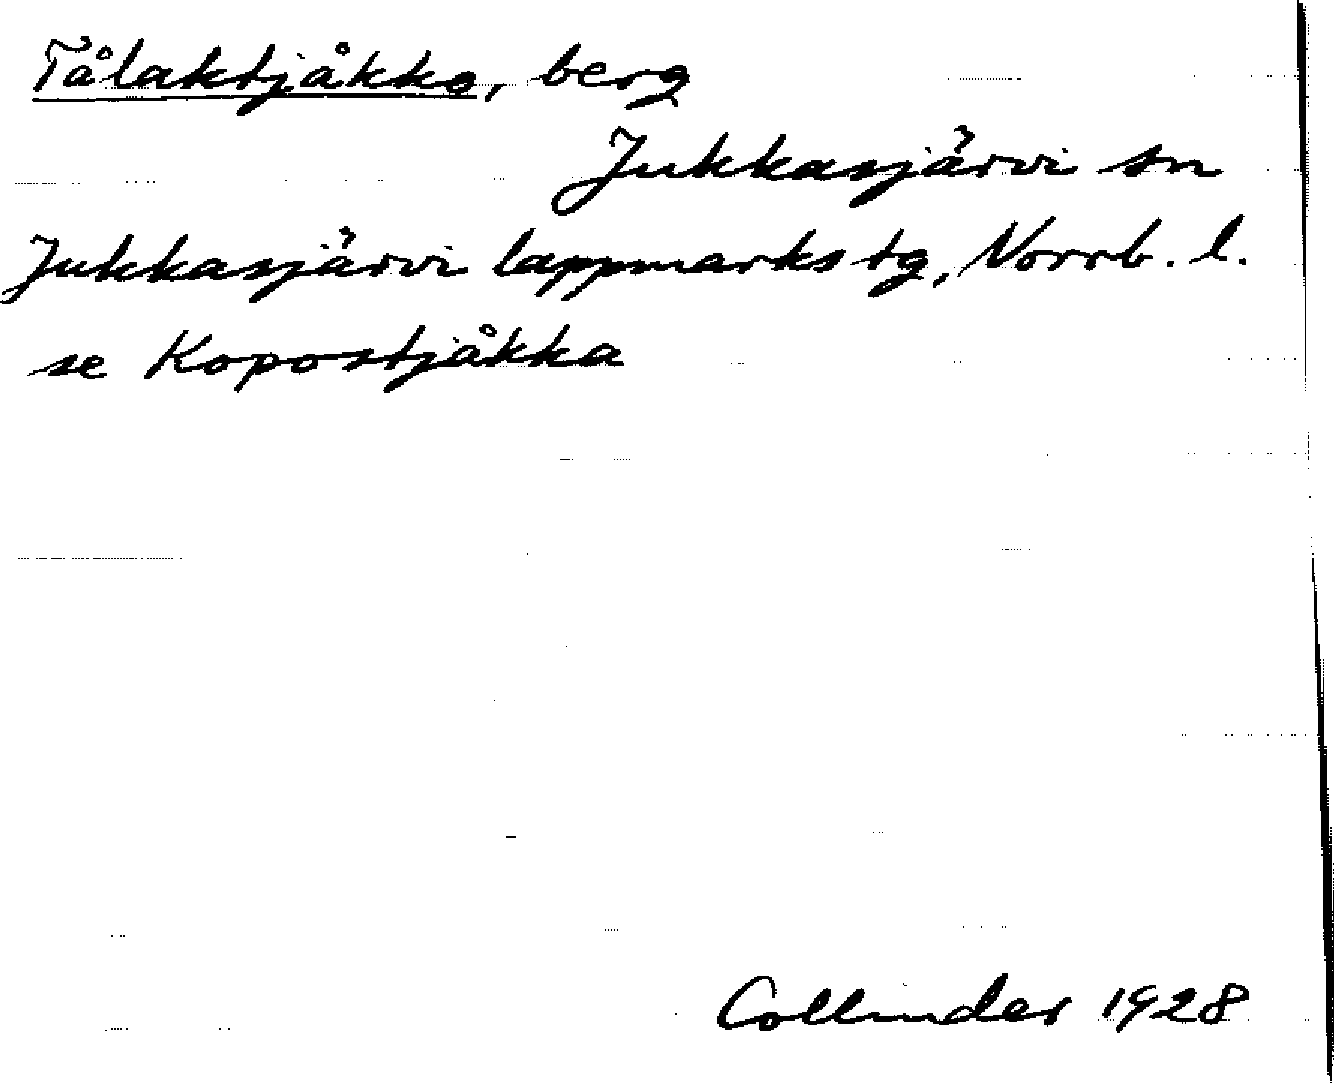 Tålaktjåkko, berg
Jukkasjärvi sn
Jukkasjärvi lappmarks tg, Norrb. l.
se Kopostjåkka
Collinder 1928